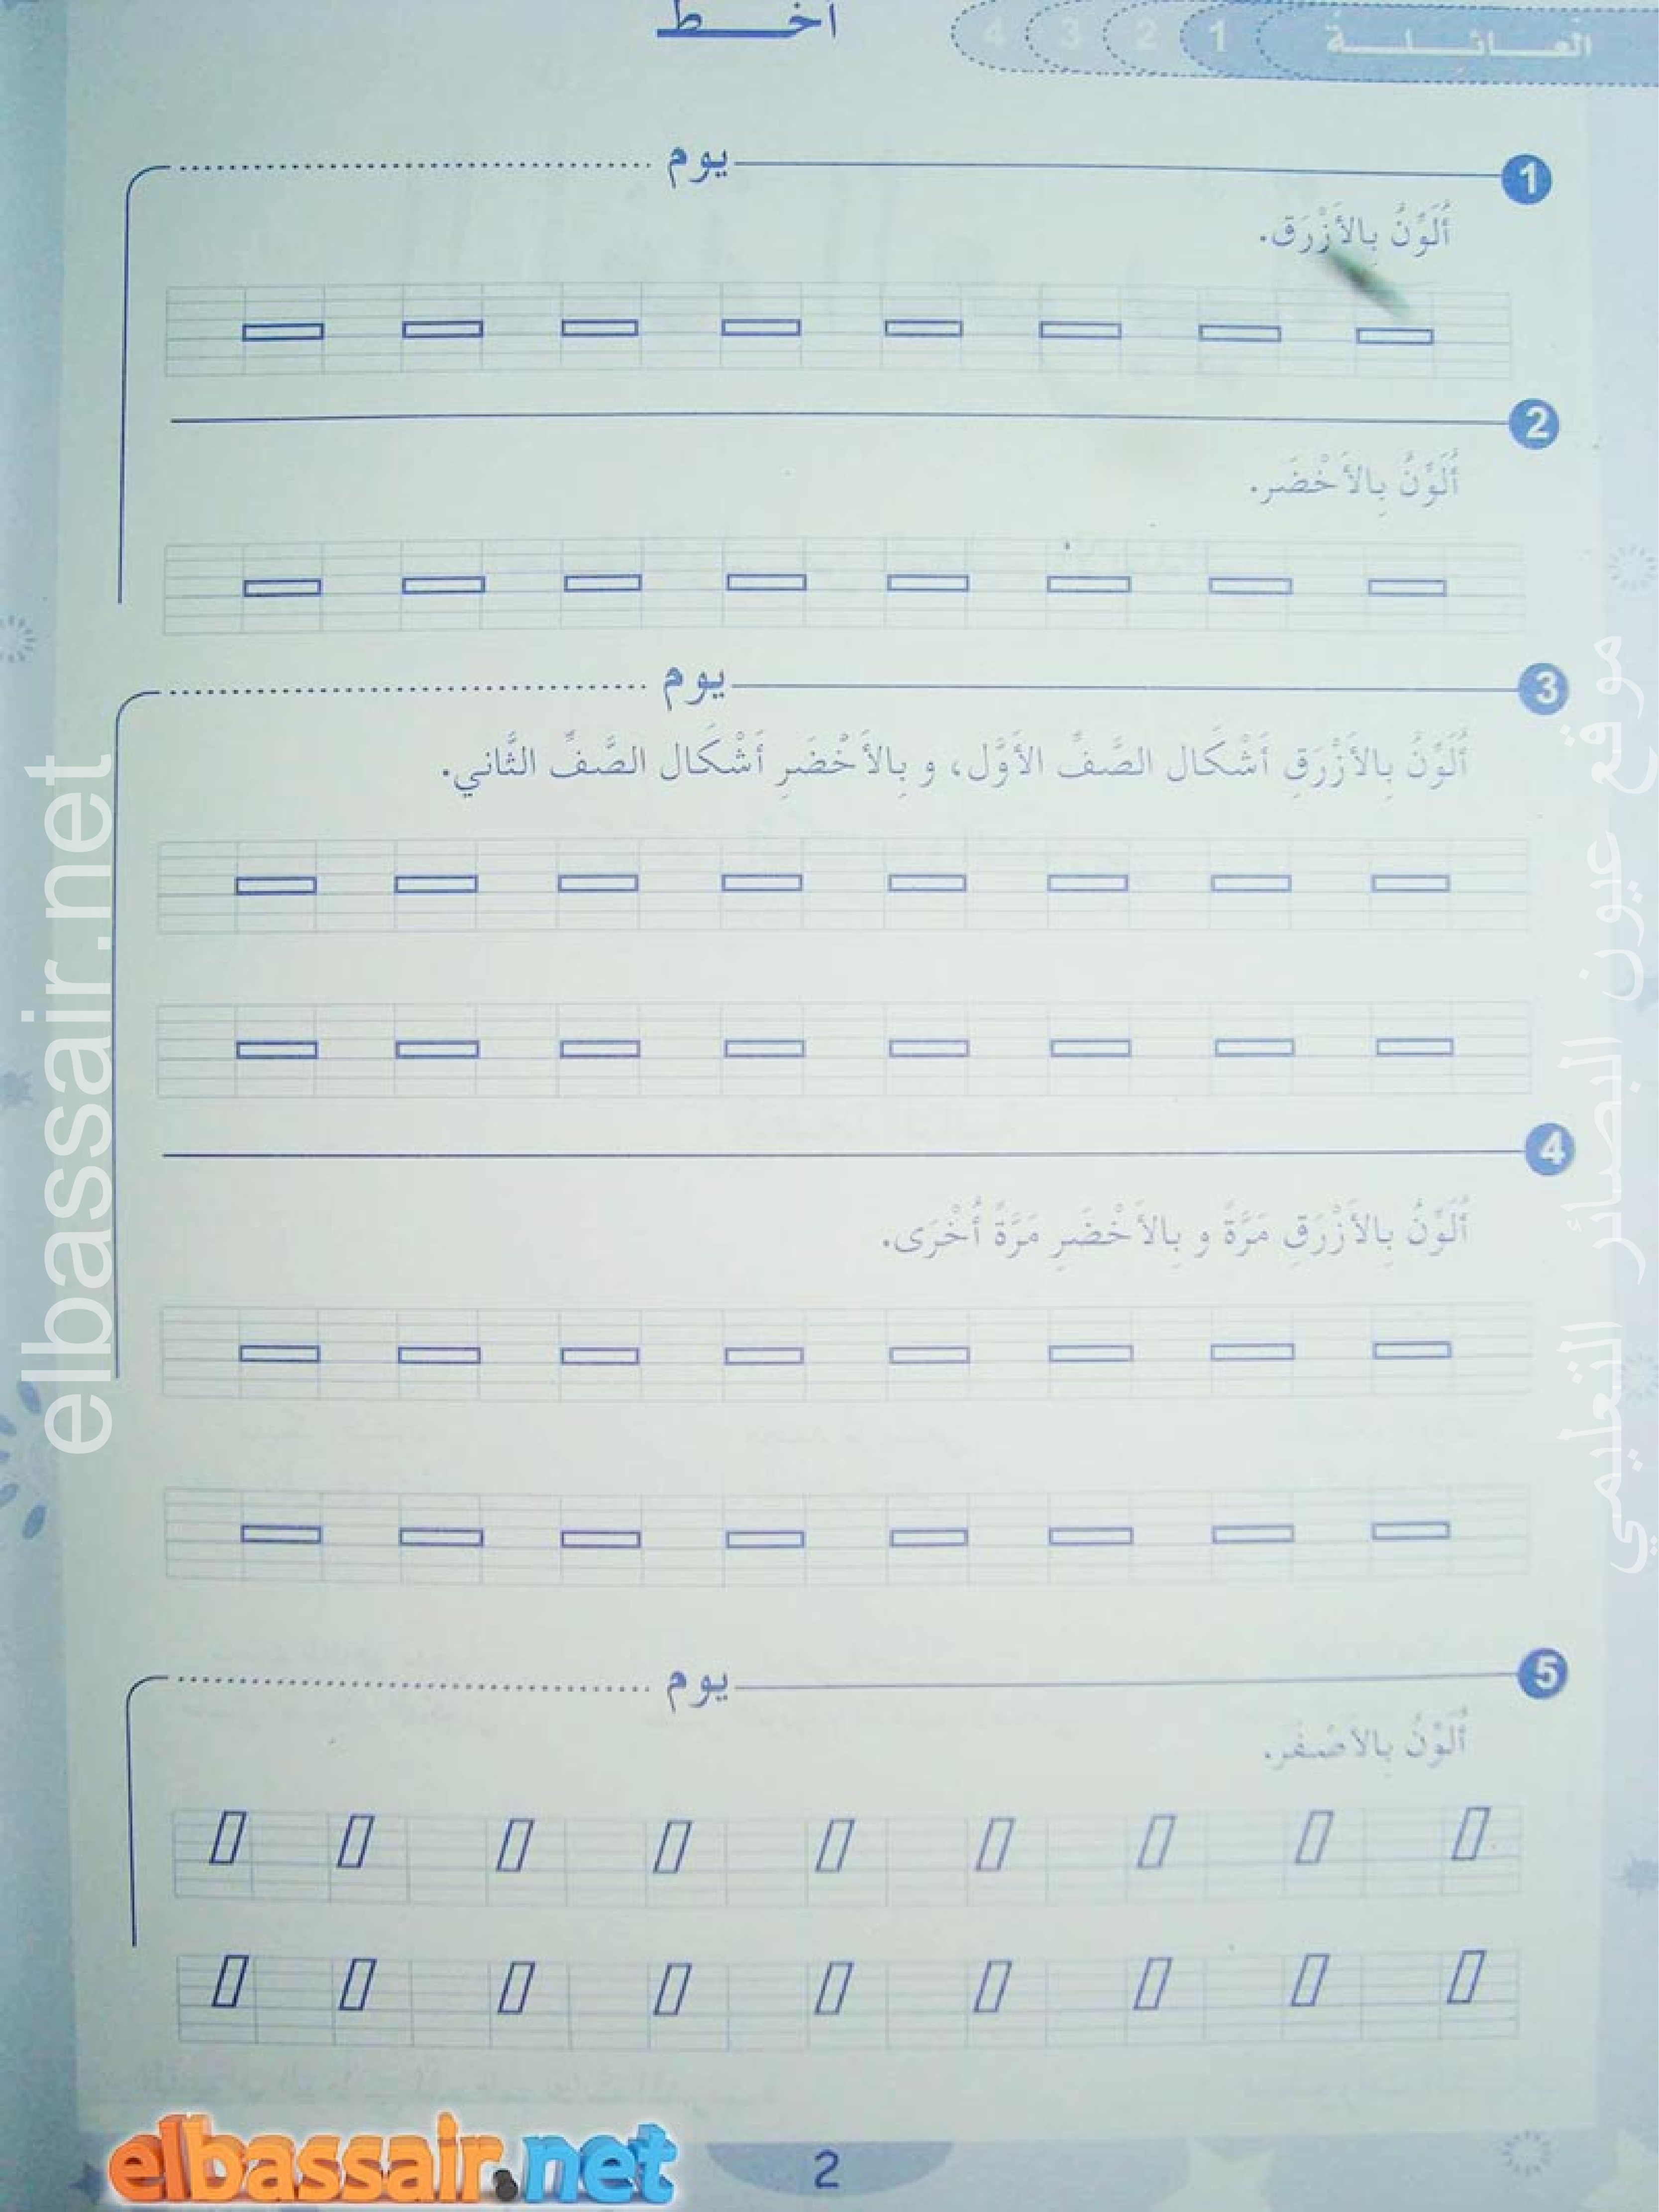 العـائـلـة 1 2 3 4
أخـط
1 يوم
أُلَوِّنُ بِالأَزْرَق.
2
أُلَوِّنُ بِالأَخْضَر.
3 يوم
أُلَوِّنُ بِالأَزْرَقِ أَشْكَال الصَّفِّ الأَوَّل، و بِالأَخْضَرِ أَشْكَال الصَّفِّ الثَّاني.
4
أُلَوِّنُ بِالأَزْرَقِ مَرَّةً و بِالأَخْضَرِ مَرَّةً أُخْرَى.
5 يوم
أُلَوِّنُ بِالأَصْفَر.
2
elbassair.net
elbassair.net
موقع عيون البصائر التعليمي